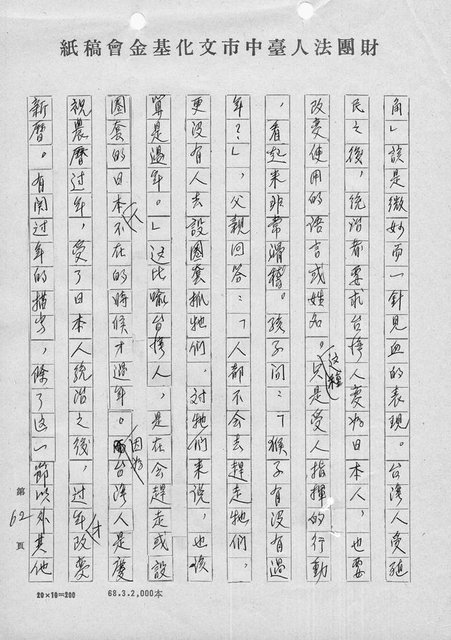 財團法人臺中市文化基金會稿紙
角」該是微妙而一針見血的表現。台湾人受殖
民之後,統治者要求台湾人変為日本人,也要
改変使用的語言或姓名。這種只是受人指揮的行動
,看起来非常滑稽。孩子問:「猴子有沒有過
年?」,父親回答:「人都不会去趕走牠們,
更沒有人去設圈套抓牠們,対牠們来説,也該
算是過年。」这比喻台湾人,是在会趕走或設
圈套的日本人不在的時候才過年。因為台湾人是慶
祝農曆过年,受了日本人統治之後,过年才改変
新曆。有関过年的描寫,除了这一節以外其他
第62頁
20×10=200
68.3.2,000本